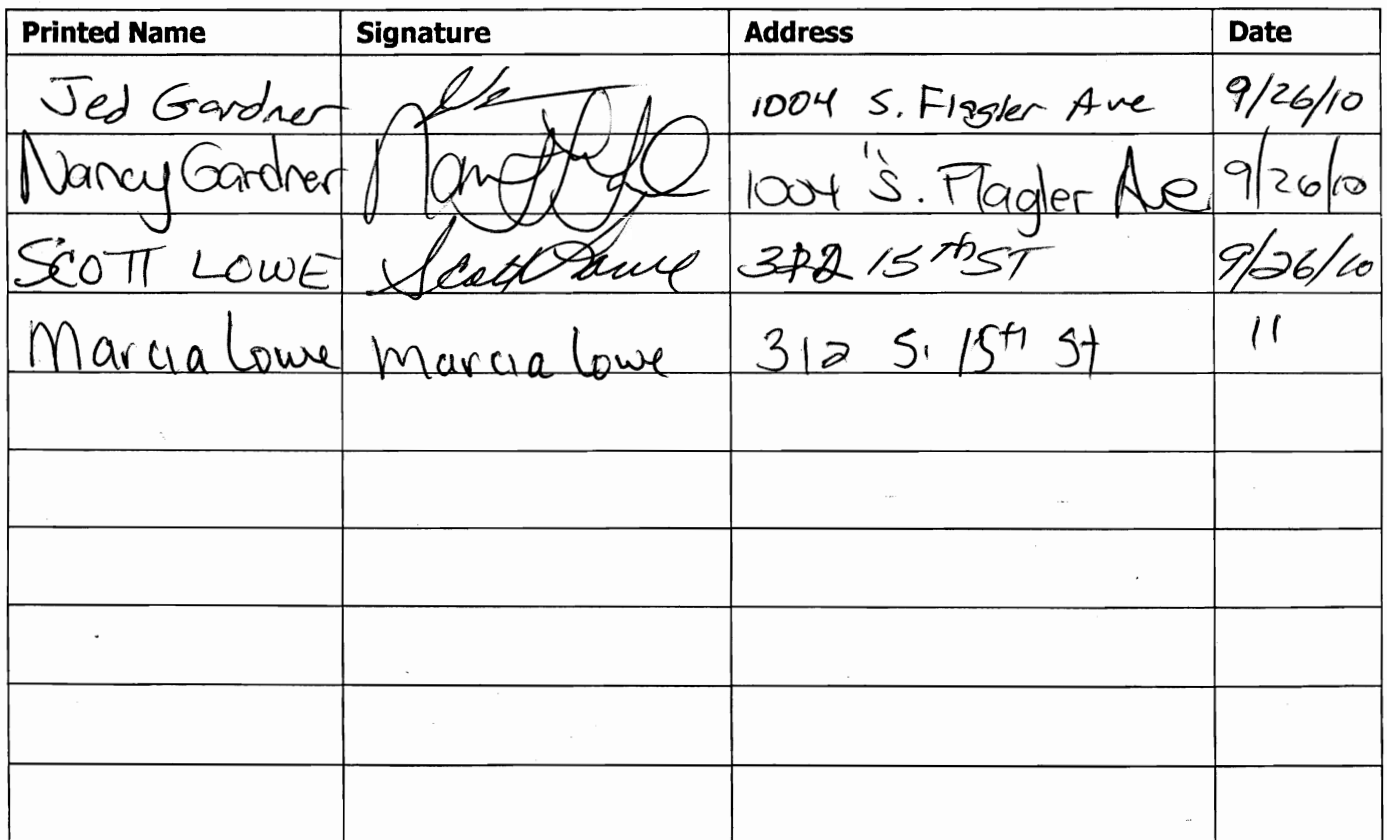 Printed Name Signature Address Date
Jed Gardner 1004 S. Flagler Ave 9/26/10
Nancy Gardner 1004 S. Flagler Ave 9/26/10
SCOTT LOWE Scott Lowe 312 15th ST 9/26/10
Marcia Lowe Marcia Lowe 312 S. 15th St 11